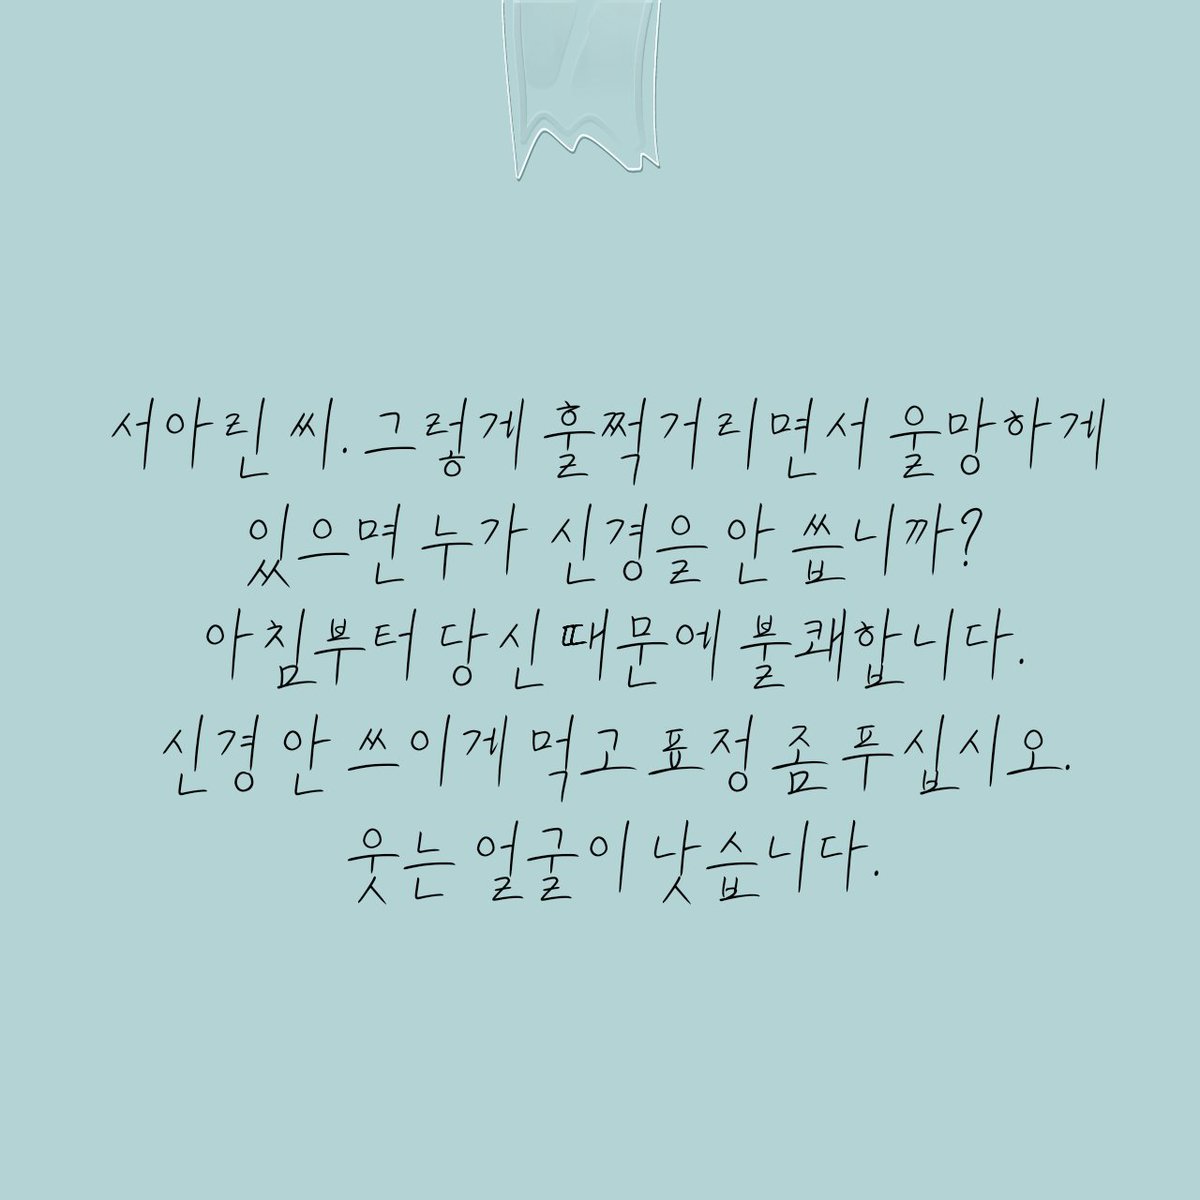 서아린 씨. 그렇게 훌쩍거리면서 울망하게
있으면 누가 신경을 안 씁니까?
아침부터 당신 때문에 불쾌합니다.
신경 안 쓰이게 먹고 표정 좀 푸십시오.
웃는 얼굴이 낫습니다.